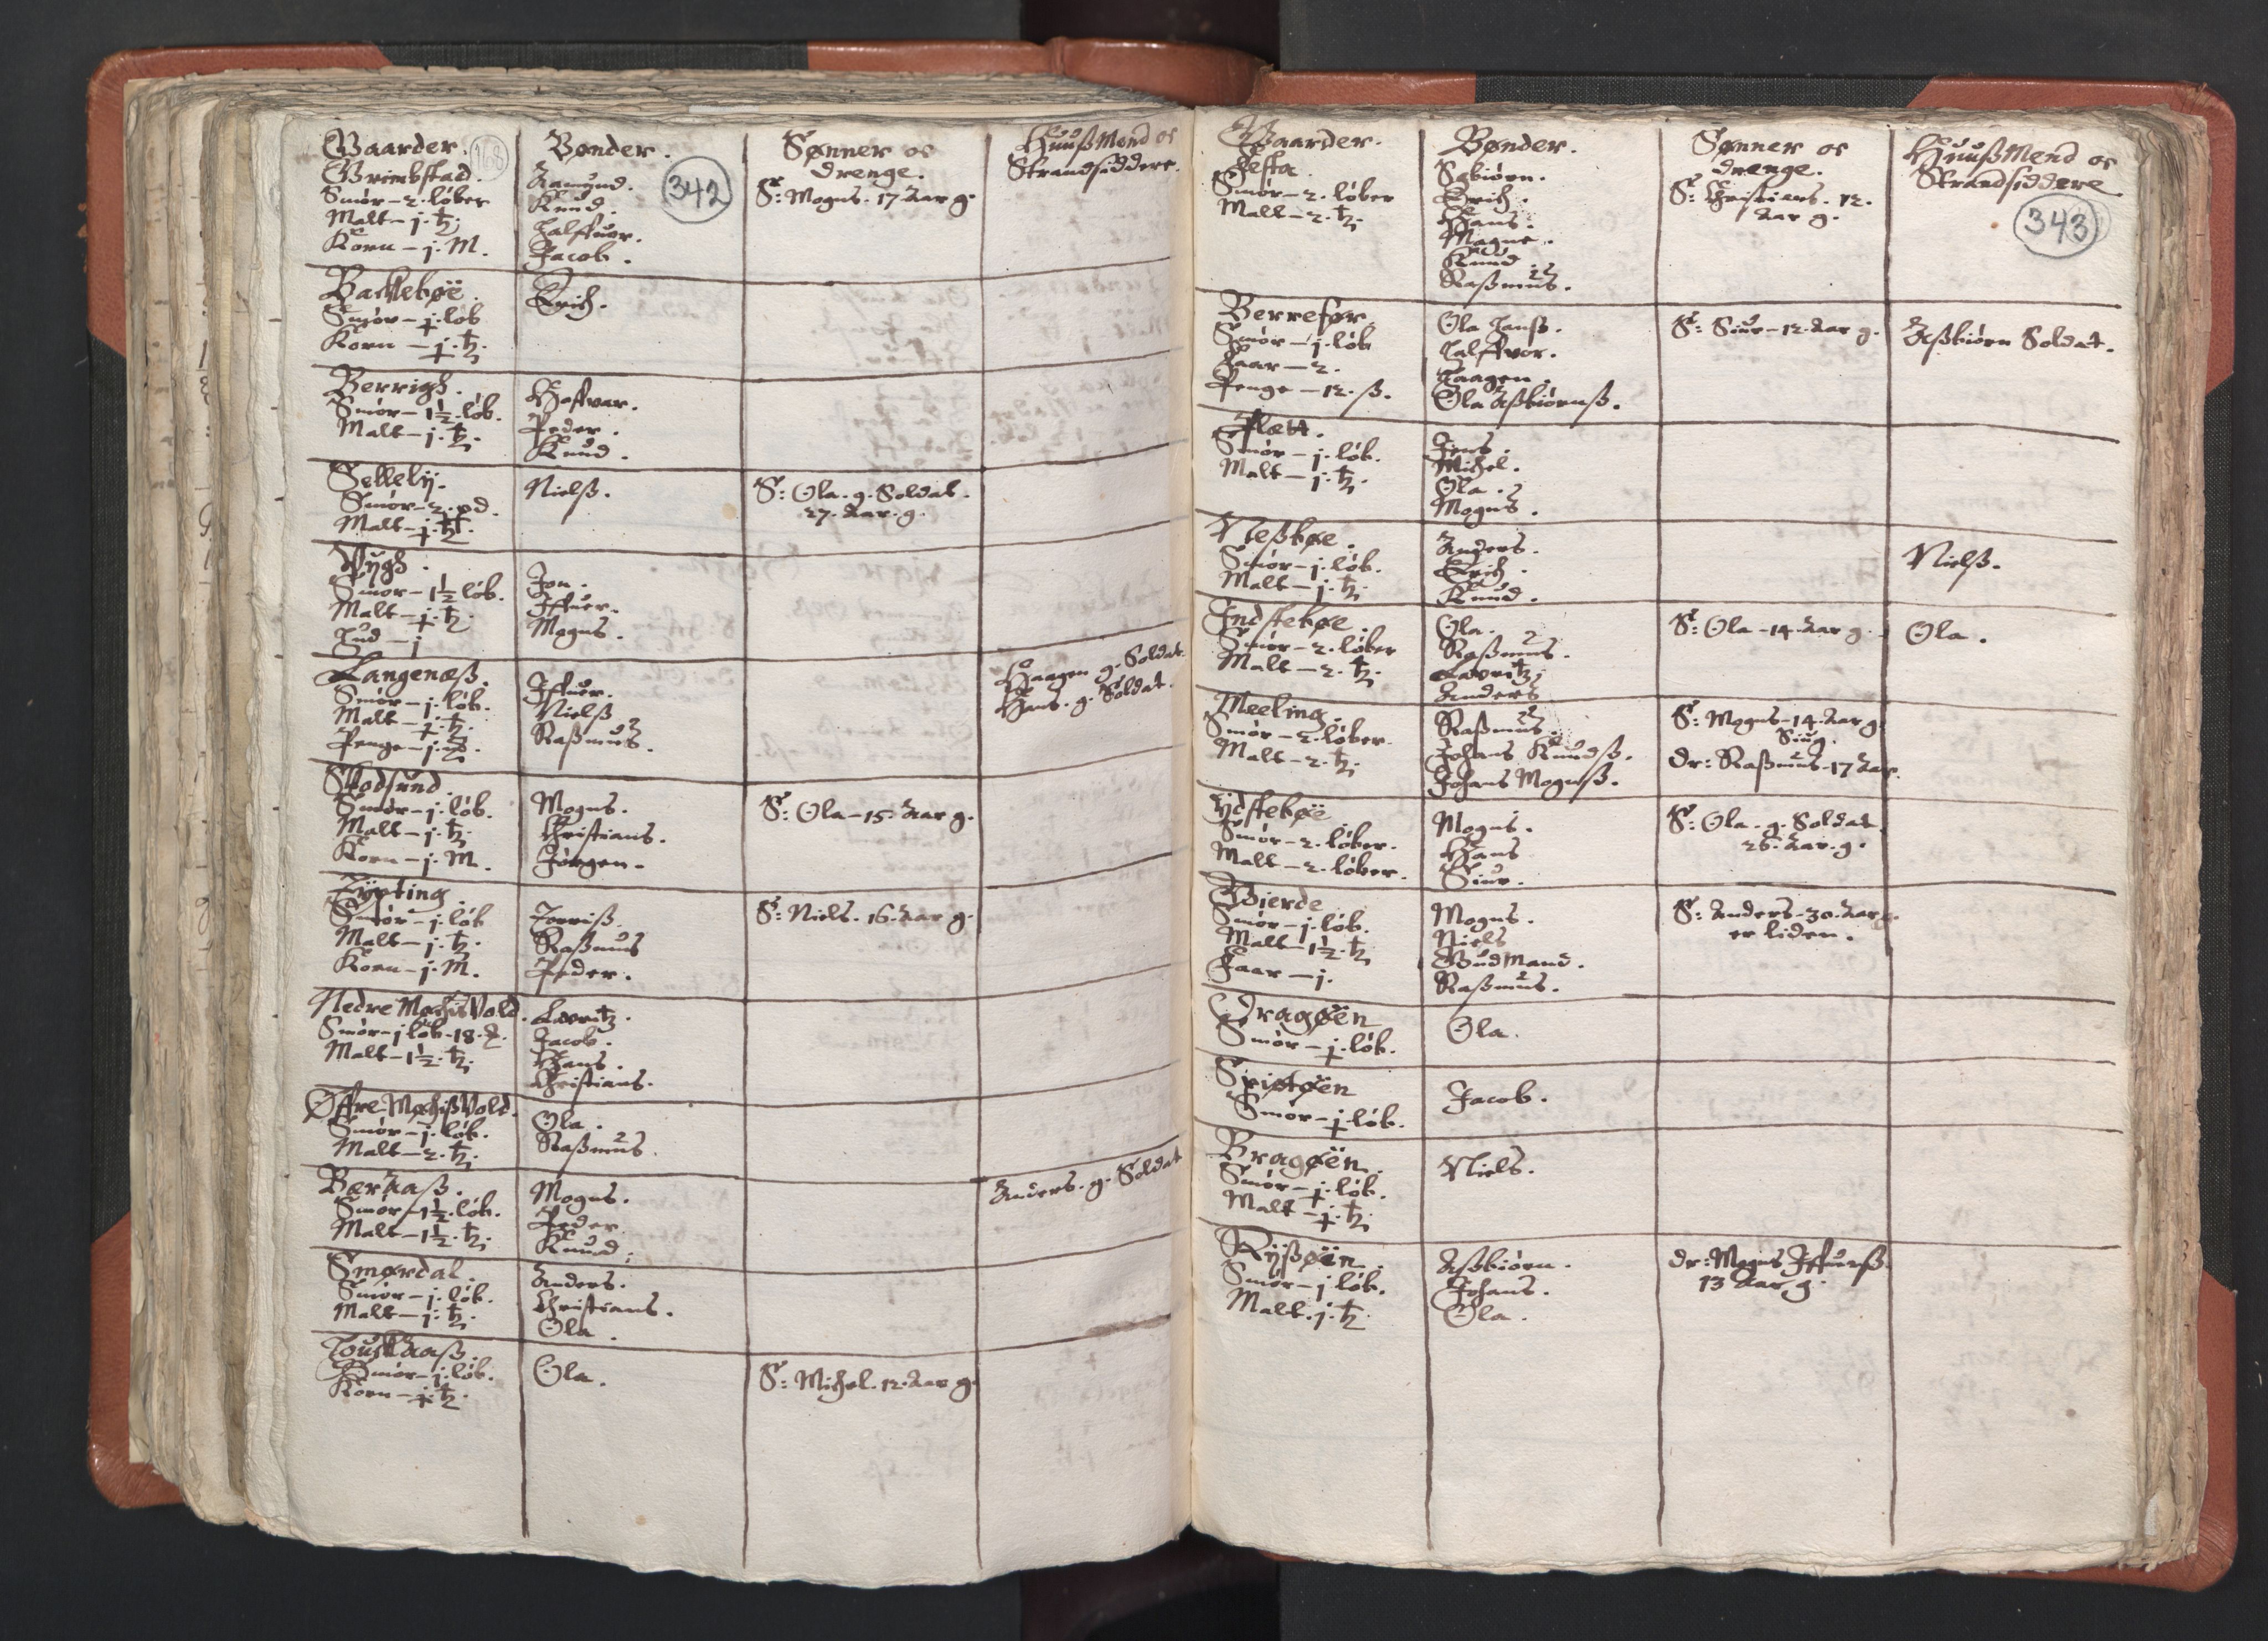 Gaarder.
168
Bønder.
342
Sønner oc
drenge.
HuußMend oc
Strandsiddere.
Grimbstad.
Smør – 2. løber
Malt – j. tꝫ
Korn – j. M.
Aamund.
Knud.
Halffuor.
Jacob.
S: Mogns. 17. Aar g.
Backebøe.
Smør – j. løb
Korn – j. tꝫ
Erich.
Berrigh.
Smør – 1½. løb.
Malt – j. tꝫ.
Peder.
Knud.
Sellelij.
Smør – 2. pd.
Malt – j. tꝫ.
Nielß.
S: Ola. g. Soldat.
27. Aar. g.
Smør – 1½ løb.
Malt – j. tꝫ.
Hud – j
Jon.
Iffuer.
Mogns.
Langenæß.
Smør – j. løb.
Malt – j. tꝫ.
Penge – j.
Iffuer.
Nielß
Raßmus.
Haagen g. Soldat.
Hans. g. Soldat.
Skodsund.
Smør – j. løb.
Malt – j. tꝫ.
Korn – j. M.
Mogns.
Christians.
Jørgen.
S: Ola – 15. Aar g.
Smør – j. løb
Malt – j. tꝫ.
Korn – j. M.
Raßmus
Peder.
S: Niels. 16. Aar g.
Nedre
Smør – j løb – 18.
Malt – 1½. tꝫ.
Lauritz.
Jacob.
Hans.
Christians.
Øffre
Smør – j. løb.
Malt – 2. tꝫ.
Ola.
Raßmus.
Beraaß.
Smør – 1½. løb.
Malt – 1½. tꝫ.
Mogns.
Peder
Knud.
Anders. g. Soldat
Smørdal.
Smør – j. løb.
Malt – j. tꝫ.
Anders.
Christians.
Ola.
Smør – j. løb.
Korn – j. tꝫ.
Ola.
S: Michel. 12. Aar g.
Gaarder.
Bønder.
Sønner oc
drenge.
HuußMend oc
Strandsiddere
343
Smør – 2. løber
Malt – 2. tꝫ.
Erich.
Hans.
Magne.
Knud.
Raßmus.
S: Christians. 12.
Aar g.
Berrefør.
Smør – j. løb
Faar – 2.
Penge – 12. ß.
Ola Hanß.
Halffvor.
Haagen.
Ola Aßbiørnß.
S: Siur – 12. Aar g.
Aßbiørn Soldat.
Flatt.
Smør – j. løb.
Malt – j. tꝫ.
Jens.
Michel.
Ola.
Mogns.
Neßbøe.
Smør – j. løb.
Malt – j. tꝫ.
Anders.
Erich.
Knud.
Nielß.
Indstebøe.
Smør – 2. løber
Malt – 2. tꝫ.
Ola.
Raßmus.
Lauritz
Anders
S: Ola – 14. Aar g.
Ola.
Meeling.
Smør – 2. løber.
Malt – 2. tꝫ.
Raßmus.
Johans Knudß.
Johans Mognß.
S: Mogns – 14. Aar g.
dr: Raßmus – 17 Aar.
Ydstebøe
Smør – 2. løber.
Malt – 2. løber.
Mogns.
Hans
Siur.
S: Ola. g. Soldat
26. Aar. g.
Gierde
Smør – j. løb.
Malt – 1½. tꝫ
Faar – j.
Mogns.
Niels
Gudmand.
Raßmus.
S: Anders – 30. Aar g.
er liden.
Dragøen
Smør – j. løb.
Ola.
Spiøtøen
Smør – j. løb.
Jacob.
Bragøen.
Smør – j. løb.
Malt – j. tꝫ
Niels.
Ryßøen.
Smør – j. løb.
Malt. j. tꝫ
Aßbiørn.
Johans.
Ola.
dr: Mogns Iffuerß.
13 Aar g.